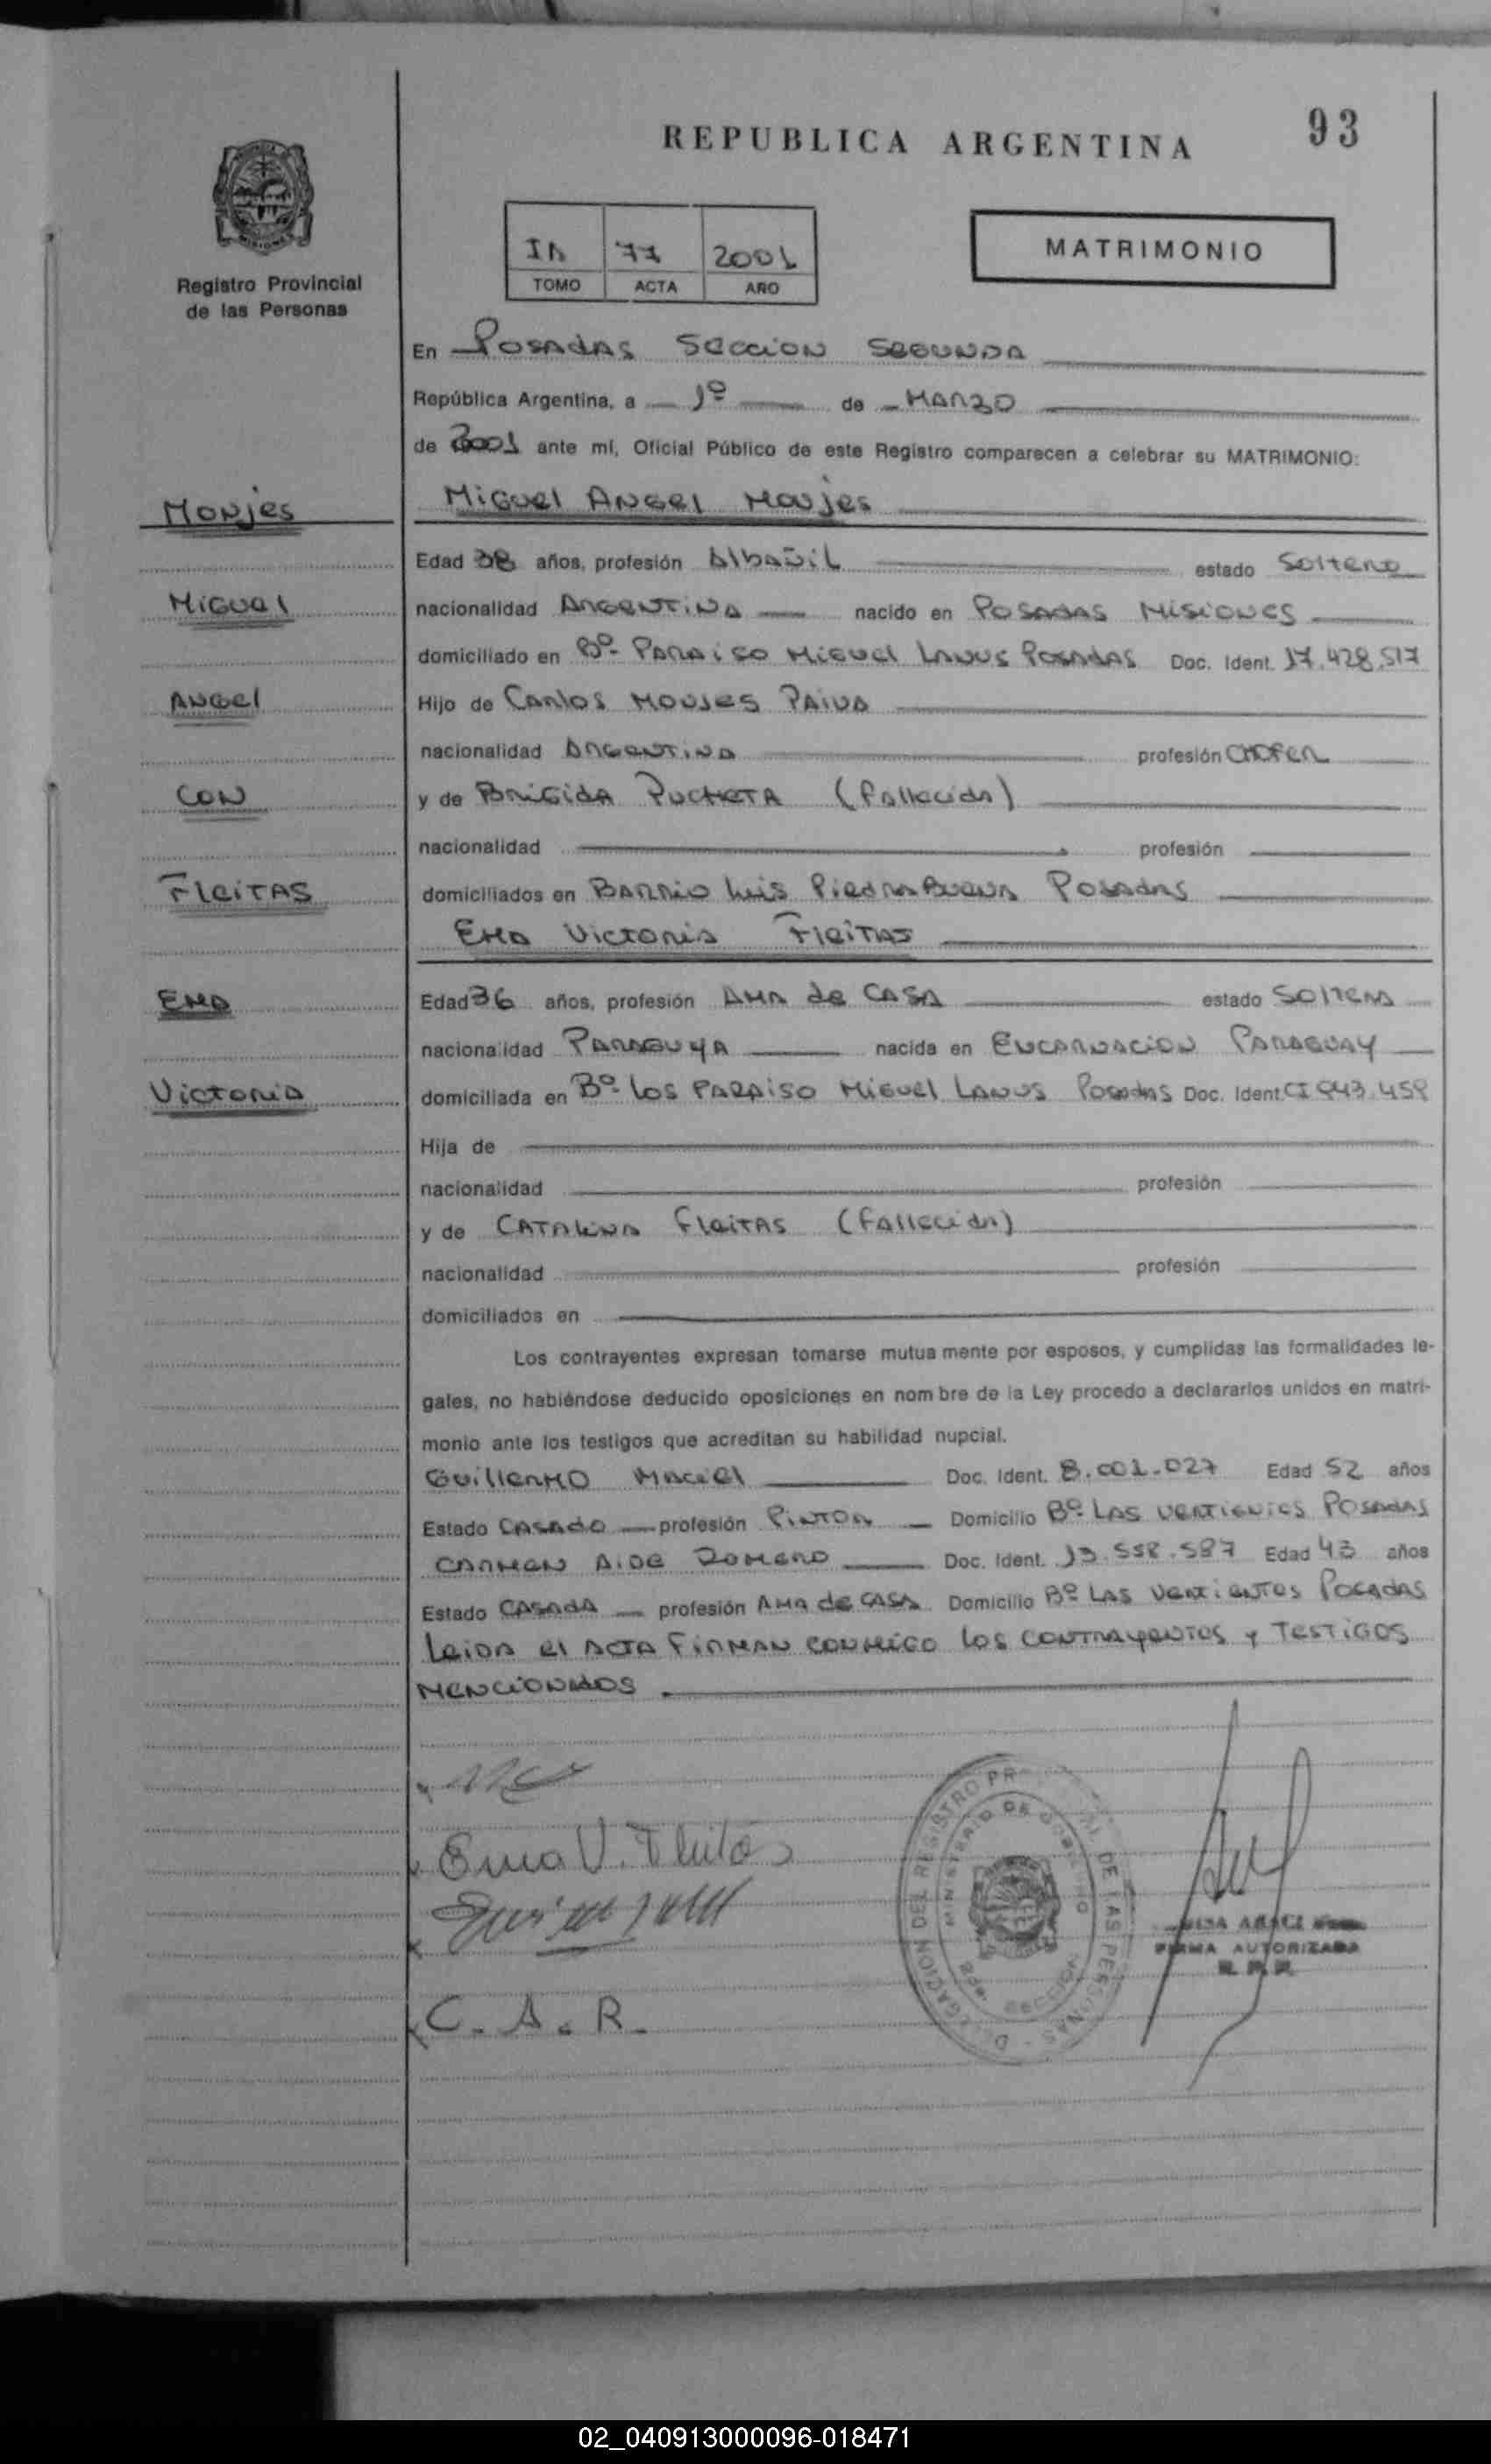 93
REPUBLICA ARGENTINA
MATRIMONIO
77 2001
TOMO ACTA AÑO
Registro Provincial
de las Personas
En Posadas Seccion Segunda
República Argentina, a 1º de Marzo
de 2001 ante mí, Oficial Público de este Registro comparecen a celebrar su MATRIMONIO:
Monjes
Miguel Angel Monjes
Edad 38 años, profesión Albañil estado Soltero
Miguel
nacionalidad Argentina nacido en Posadas Misiones
domiciliado en Bº Paraiso Miguel Lanus Posadas Doc. Ident. 17.428.517
Angel
Hijo de Carlos Monjes Paiva
nacionalidad Argentina profesión Chofer
con
y de Brigida Pucheta (Fallecida)
nacionalidad profesión
Fleitas
domiciliados en Barrio Luis Piedrabuena Posadas
Ema Victoria Fleitas
Ema
Edad 36 años, profesión Ama de Casa estado Soltera
nacionalidad Paraguya nacida en Encarnacion Paraguay
Victoria
domiciliada en Bº Los Paraiso Miguel Lanus Posadas Doc. Ident. CI 943.459
Hija de
nacionalidad profesión
y de Catalina Fleitas (Fallecida)
nacionalidad profesión
domiciliados en
Los contrayentes expresan tomarse mutua mente por esposos, y cumplidas las formalidades le-
gales, no habiéndose deducido oposiciones en nom bre de la Ley procedo a declararlos unidos en matri-
monio ante los testigos que acreditan su habilidad nupcial.
Guillermo Maciel Doc. Ident. 8.001.027 Edad 52 años
Estado Casado profesión Pintor Domicilio Bº Las Vertientes Posadas
Carmen Aide Romero Doc. Ident. 13.558.587 Edad 43 años
Estado Casada profesión Ama de Casa Domicilio Bº Las Vertientes Posadas
Leida el acta firman conmigo los contrayentes y testigos
mencionados.
Ema V. Fleitas
C. A. R.
DELEGACION DEL REGISTRO PR AL DE LAS PERSONAS
MINISTERIO DE GOBIERNO
SECCION
FIRMA AUTORIZADA
02_040913000096-018471